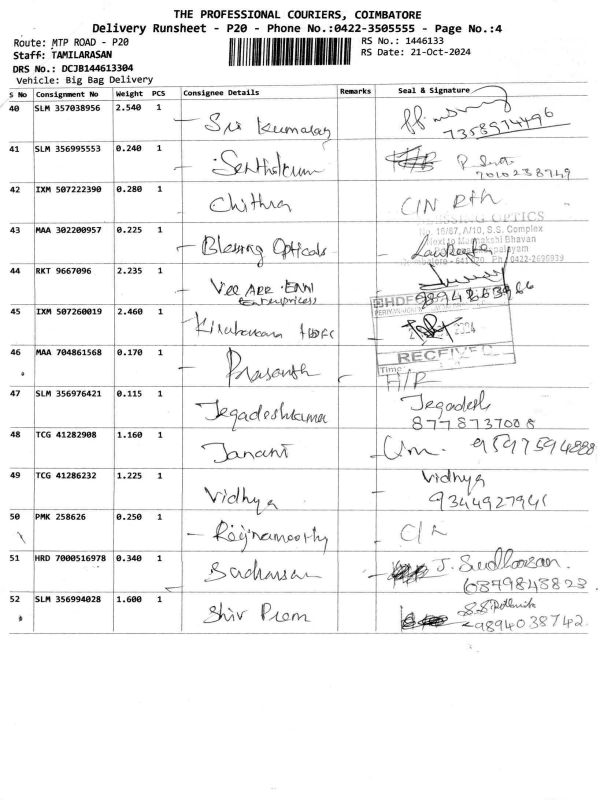 THE PROFESSIONAL COURIERS, COIMBATORE
Delivery Runsheet - P20 - Phone No.:0422-3505555 - Page No.:4
Route: MTP ROAD - P20
RS No.: 1446133
Staff: TAMILARASAN
RS Date: 21-Oct-2024
DRS No.: DCJB144613304
Vehicle: Big Bag Delivery
S No Consignment No Weight PCS Consignee Details Remarks Seal & Signature
40 SLM 357038956 2.540 1
Sri Kumaran
7358974496
41 SLM 356995553 0.240 1
Senthilkumar
7010238949
42 IXM 507222390 0.280 1
Chithra
43 MAA 302200957 0.225 1
OPTICS
No. 16/67, A/10, S.S. Complex
Next to Bhavan
Blessing Opticals
0422-2696939
44 RKT 9667096 2.235 1
Vee Aar
Enterprises
45 IXM 507260019 2.460 1
HDFC
2024
RECEIVED
46 MAA 704861568 0.170 1
Time
Prasanth
47 SLM 356976421 0.115 1
Jegadeshkumar
Jegadesh
8778737008
48 TCG 41282908 1.160 1
Janani
9597594888
49 TCG 41286232 1.225 1
Vidhya
Vidhya
9344927941
50 PMK 258626 0.250 1
51 HRD 7000516978 0.340 1
Sudharsan
J. Sudharsan
6379843823
52 SLM 356994028 1.600 1
Shiv Prem
9894038742